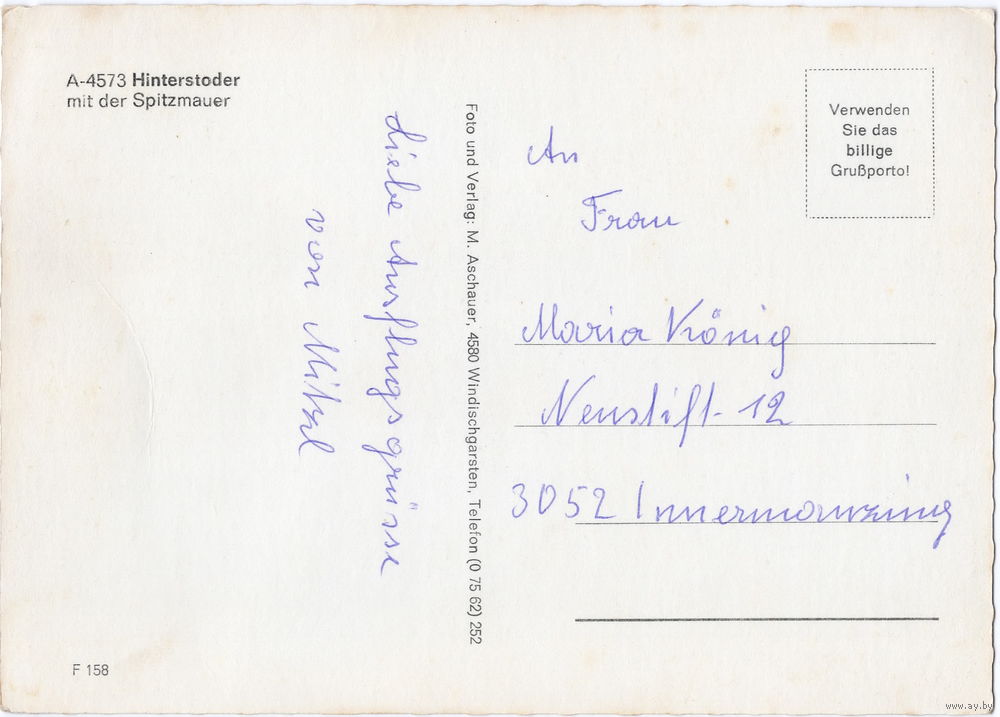 A-4573 Hinterstoder
mit der Spitzmauer
Liebe Ausflugsgrüsse
von Mitzl
F 158
Foto und Verlag: M. Aschauer, 4580 Windischgarsten, Telefon (0 75 62) 252
Verwenden
Sie das
billige
Grußporto!
An
Frau
Maria König
Neustift 12
3052 Innermanzing
www.ay.by